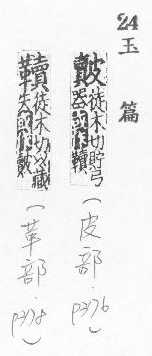 24 玉篇
皾徒木切貯弓器或作韇(皮部.P376)
韇徒木切以藏矢或作皾(革部.P378)